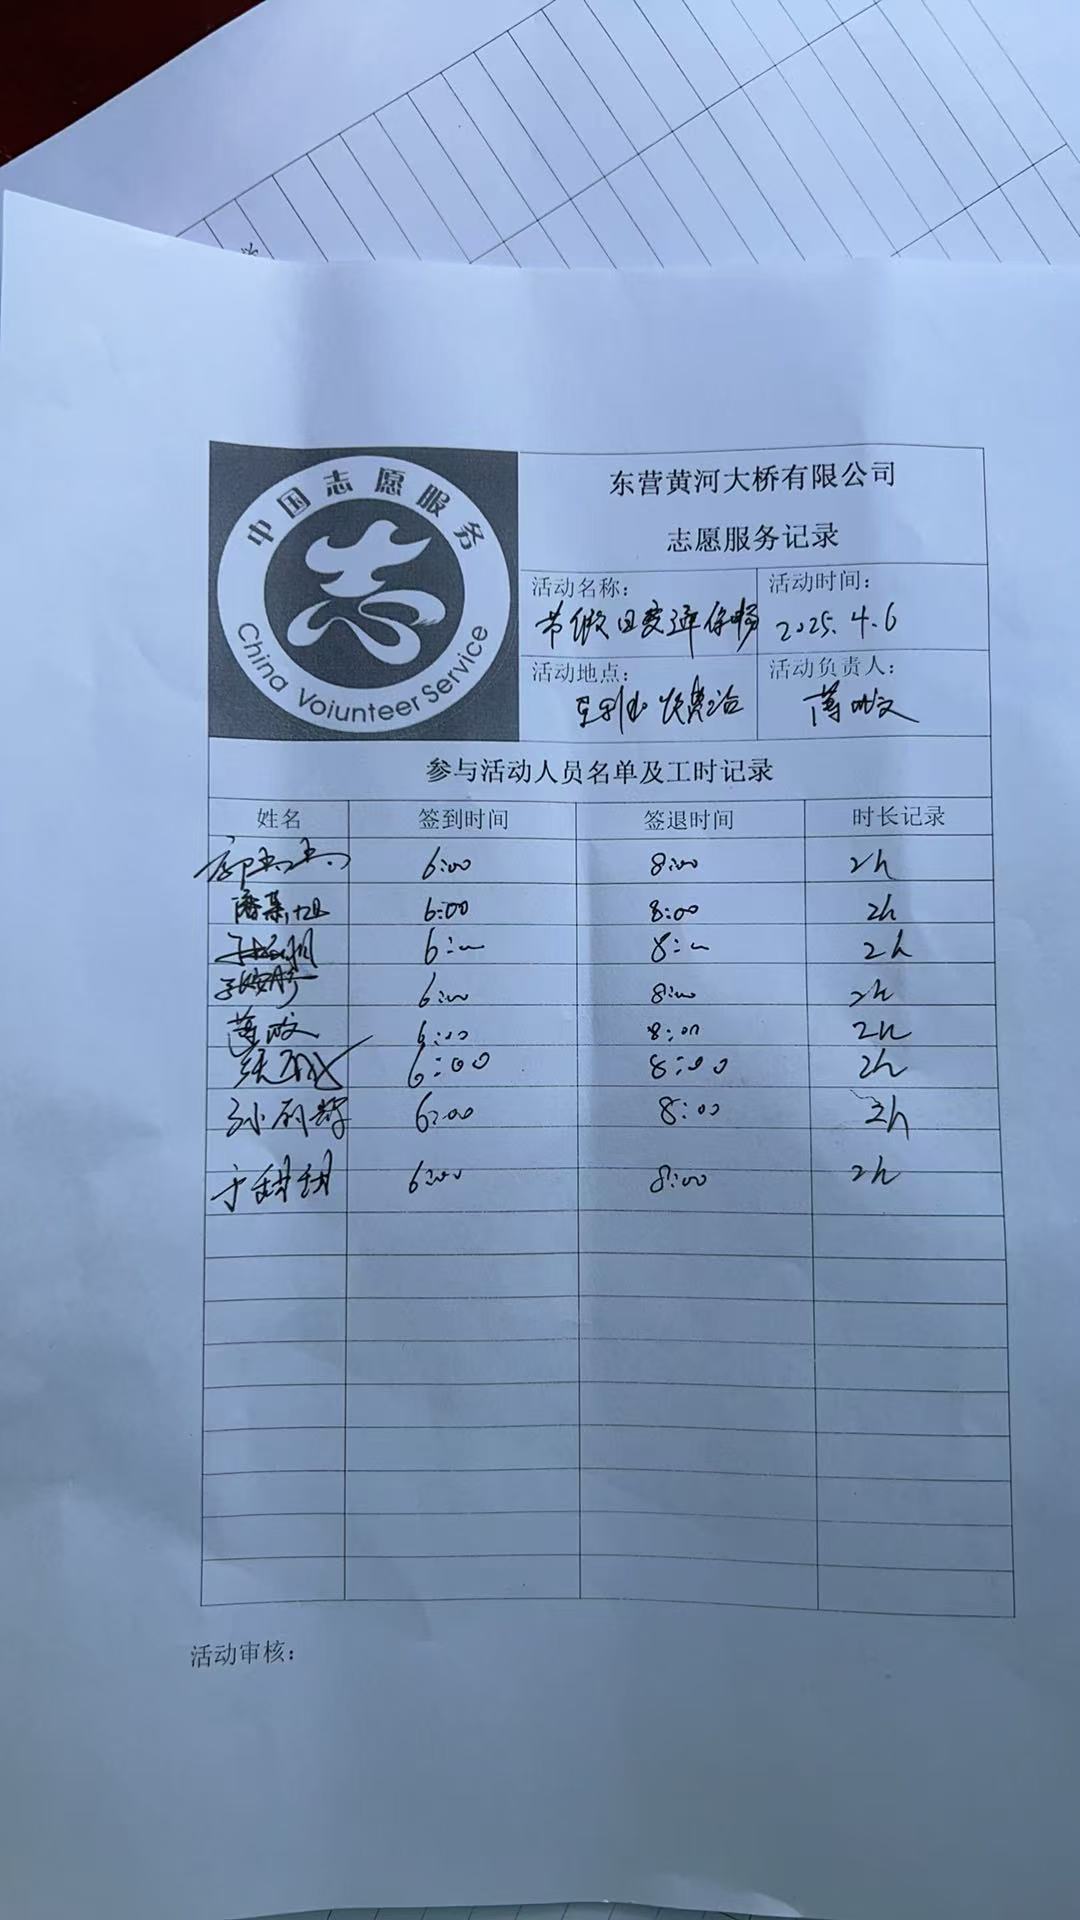 中国志愿服务
志
China Voiunteer Service
东营黄河大桥有限公司
志愿服务记录
活动名称：
节假日交通保畅
活动时间：
2025.4.6
活动地点：
收费站
活动负责人：
参与活动人员名单及工时记录
姓名 签到时间 签退时间 时长记录
6:00 8:00 2h
6:00 8:00 2h
6:00 8:00 2h
6:00 8:00 2h
6:00 8:00 2h
6:00 8:00 2h
6:00 8:00 2h
于甜甜 6:00 8:00 2h
活动审核：